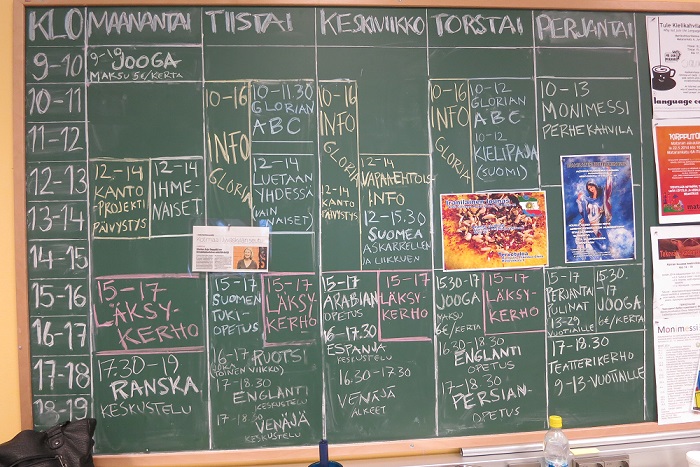 KLO
MAANANTAI
TIISTAI
KESKIVIIKKO
TORSTAI
PERJANTAI
9-10
10-11
11-12
12-13
13-14
14-15
15-16
16-17
17-18
18-19
9-10
JOOGA
MAKSU 5€/KERTA
12-14
KANTO-
PROJEKTI
PÄIVYSTYS
12-14
IHME-
NAISET
15-17
LÄKSY-
KERHO
17.30-19
RANSKA
KESKUSTELU
10-16
INFO
GLORIA
10-11.30
GLORIAN
ABC
12-14
LUETAAN
YHDESSÄ
(VAIN
NAISET)
15-17
SUOMEN
TUKI-
OPETUS
15-17
LÄKSY-
KERHO
16-17
(JOKA
TOINEN VIIKKO)
RUOTSI
17-18.30
ENGLANTI
KESKUSTELU
17-18.30
VENÄJÄ
KESKUSTELU
10-16
INFO
GLORIA
12-14
KANTO
PÄIVYSTYS
12-14
VAPAAEHTOIS-
INFO
12-15.30
SUOMEA
ASKARRELLEN
JA LIIKKUEN
15-17
ARABIAN
OPETUS
15-17
LÄKSY-
KERHO
16-17.30
ESPANJA
KESKUSTELU
16.30-17.30
VENÄJÄ
ALKEET
10-16
INFO
GLORIA
10-12
GLORIAN
ABC
10-12
KIELIPAJA
(SUOMI)
15.30-17
JOOGA
MAKSU
6€/KERTA
15-17
LÄKSY-
KERHO
16.30-18.30
ENGLANTI
OPETUS
17-18.30
PERSIAN-
OPETUS
10-13
MONIMESSI
PERHEKAHVILA
15-17
PERJANTAI
PULINAT
13-29
VUOTIAILLE
15.30-
17
JOOGA
6€/KERTA
17-18.30
TEATTERIKERHO
9-13-VUOTIAILLE
Tule Kielikahvilaan
language ca
Monimessi